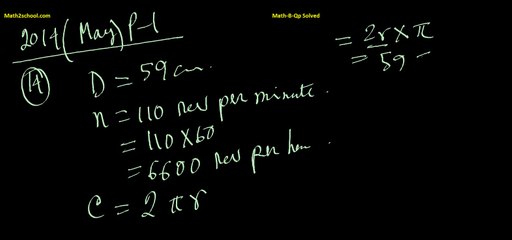 Math2school.com
Math-B-Qp Solved
2014 (May) P-1
14 D = 59 cm.
n = 110 rev per minute.
= 110 × 60
= 6600 rev per hour.
C = 2 π r
= 2r × π
= 59 -